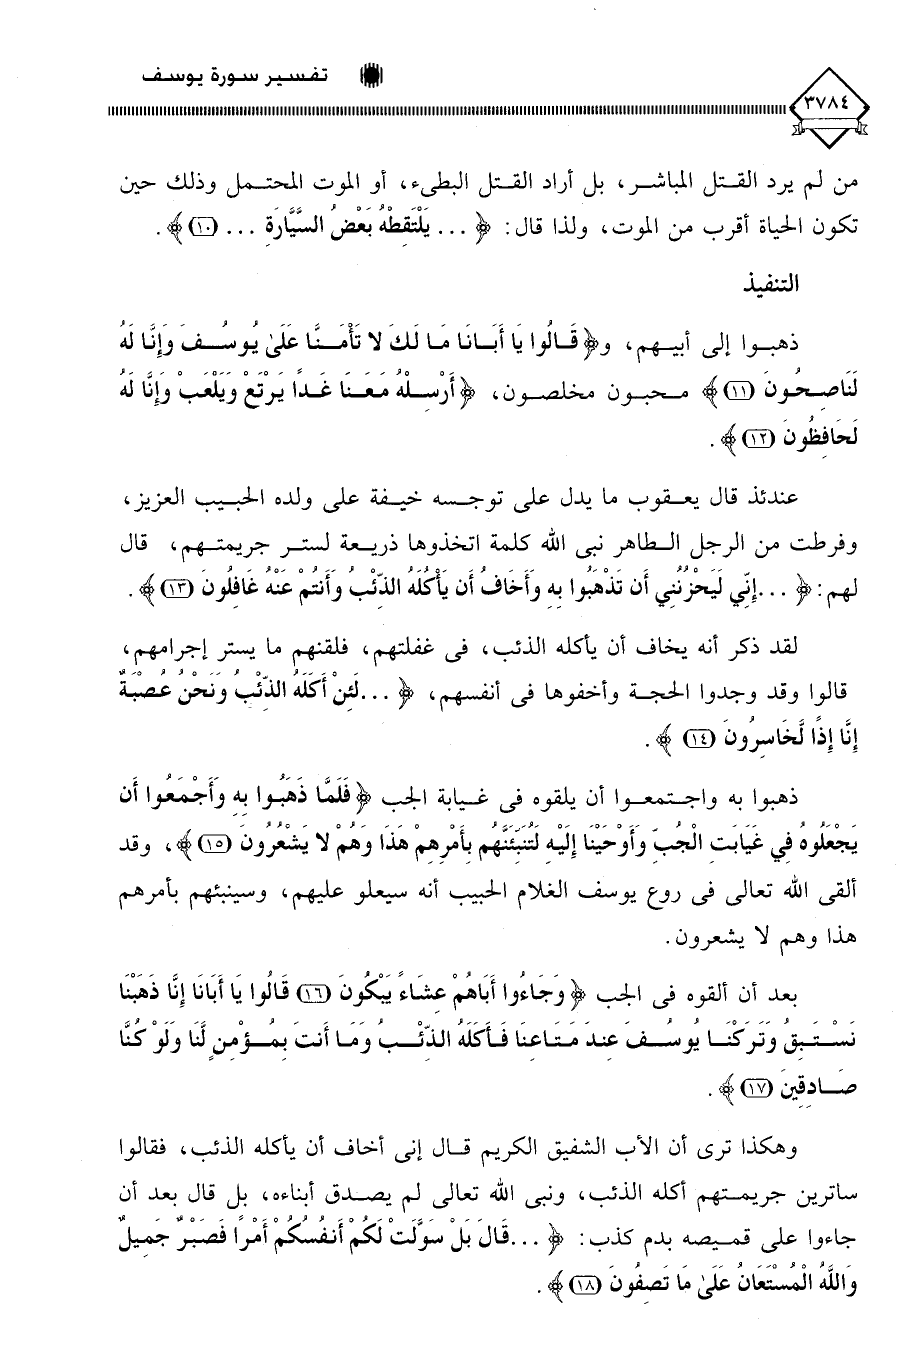 ٣٧٨٤ تفسير سورة يوسف
من لم يرد القتل المباشر، بل أراد القتل البطىء، أو الموت المحتمل وذلك حين
تكون الحياة أقرب من الموت، ولذا قال: ﴿ ... يَلْتَقِطْهُ بَعْضُ السَّيَّارَةِ ... (١٠)﴾ .
التنفيذ
ذهبوا إلى أبيهم، و﴿ قَالُوا يَا أَبَانَا مَا لَكَ لا تَأْمَنَّا عَلَىٰ يُوسُفَ وَإِنَّا لَهُ
لَنَاصِحُونَ (١١)﴾ محبون مخلصون، ﴿أَرْسِلْهُ مَعَنَا غَدًا يَرْتَعْ وَيَلْعَبْ وَإِنَّا لَهُ
لَحَافِظُونَ (١٢)﴾ .
عندئذ قال يعقوب ما يدل على توجسه خيفة على ولده الحبيب العزيز،
وفرطت من الرجل الطاهر نبى الله كلمة اتخذوها ذريعة لستر جريمتهم، قال
لهم: ﴿ ...إِنِّي لَيَحْزُنُنِي أَن تَذْهَبُوا بِهِ وَأَخَافُ أَن يَأْكُلَهُ الذِّئْبُ وَأَنتُمْ عَنْهُ غَافِلُونَ (١٣)﴾ .
لقد ذكر أنه يخاف أن يأكله الذئب، فى غفلتهم، فلقنهم ما يستر إجرامهم،
قالوا وقد وجدوا الحجة وأخفوها فى أنفسهم، ﴿ ...لَئِنْ أَكَلَهُ الذِّئْبُ وَنَحْنُ عُصْبَةٌ
إِنَّا إِذًا لَّخَاسِرُونَ (١٤) ﴾ .
ذهبوا به واجتمعوا أن يلقوه فى غيابة الجب ﴿ فَلَمَّا ذَهَبُوا بِهِ وَأَجْمَعُوا أَن
يَجْعَلُوهُ فِي غَيَابَتِ الْجُبِّ وَأَوْحَيْنَا إِلَيْهِ لَتُنَبِّئَنَّهُم بِأَمْرِهِمْ هَذَا وَهُمْ لا يَشْعُرُونَ (١٥)﴾، وقد
ألقى الله تعالى فى روع يوسف الغلام الحبيب أنه سيعلو عليهم، وسينبئهم بأمرهم
هذا وهم لا يشعرون.
بعد أن ألقوه فى الجب ﴿ وَجَاءُوا أَبَاهُمْ عِشَاءً يَبْكُونَ (١٦) قَالُوا يَا أَبَانَا إِنَّا ذَهَبْنَا
نَسْتَبِقُ وَتَرَكْنَا يُوسُفَ عِندَ مَتَاعِنَا فَأَكَلَهُ الذِّئْبُ وَمَا أَنتَ بِمُؤْمِنٍ لَّنَا وَلَوْ كُنَّا
صَادِقِينَ (١٧)﴾ .
وهكذا ترى أن الأب الشفيق الكريم قال إنى أخاف أن يأكله الذئب، فقالوا
ساترين جريمتهم أكله الذئب، ونبى الله تعالى لم يصدق أبناءه، بل قال بعد أن
جاءوا على قميصه بدم كذب: ﴿ ...قَالَ بَلْ سَوَّلَتْ لَكُمْ أَنفُسُكُمْ أَمْرًا فَصَبْرٌ جَمِيلٌ
وَاللَّهُ الْمُسْتَعَانُ عَلَىٰ مَا تَصِفُونَ (١٨)﴾ .